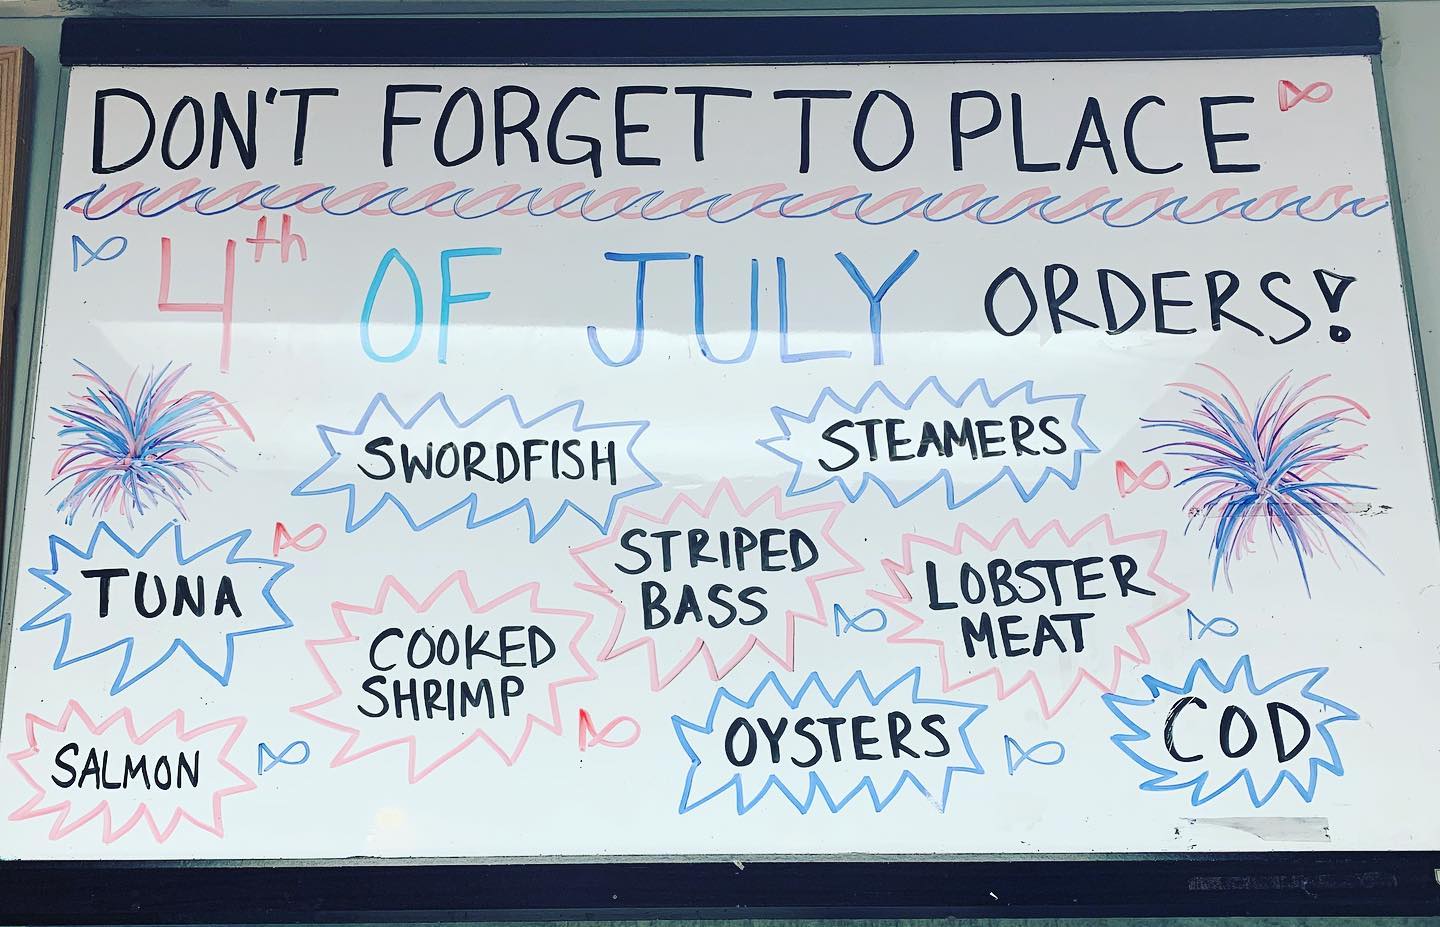 DON'T FORGET TO PLACE
4th OF JULY ORDERS!
SWORDFISH
STEAMERS
TUNA
STRIPED
BASS
LOBSTER
MEAT
COOKED
SHRIMP
SALMON
OYSTERS
COD